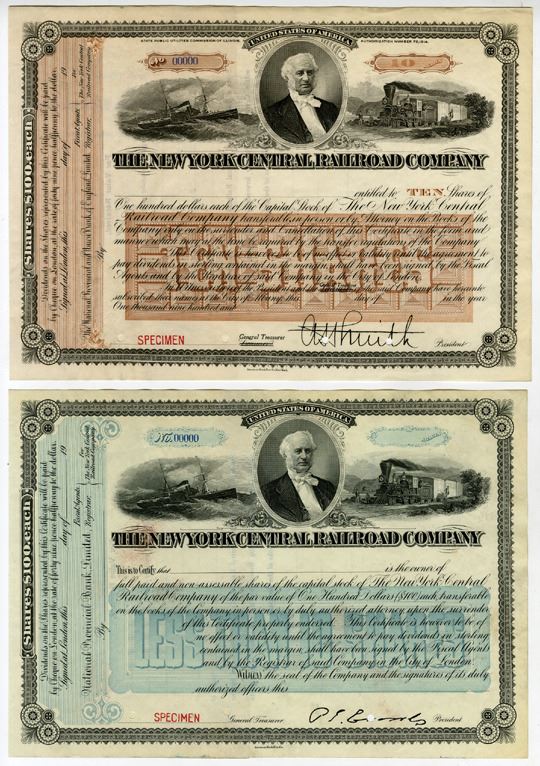 UNITED STATES OF AMERICA
STATE PUBLIC UTILITIES COMMISSION OF ILLINOIS.
AUTHORIZATION NUMBER
No 00000
10
THE NEW YORK CENTRAL RAILROAD COMPANY
entitled to TEN Shares of
One hundred dollars each of the Capital Stock of The New York Central
Railroad Company transferable in person or by Attorney on the Books of the
Company only on the surrender and Cancellation of this Certificate in the form and
manner which may at the time be required by the transfer regulations of the Company.
This Certificate is however to be of no effect or validity until the agreement to
pay dividends in sterling contained in the margin, shall have been signed by the Fiscal
Agents and by the Registrar of said Company in the City of London.
In Witness the President and the
of the said Company have hereunto
subscribed their names at the City of Albany this day of in the year
One thousand nine hundred and
SPECIMEN
General Treasurer
President
Shares $100. each
Dividends on the Shares represented by this Certificate will be paid
by Cheque on London, at the rate of forty nine pence halfpenny to the dollar.
Signed at London, this day of 19
Fiscal Agents
The National Provincial and Union Bank of England, Limited, Registrar,
For
The New York Central
Railroad Company.
By
UNITED STATES OF AMERICA
No. 00000
THE NEW YORK CENTRAL RAILROAD COMPANY
This is to Certify that is the owner of
full paid and non-assessable shares of the capital stock of The New York Central
Railroad Company of the par value of One Hundred Dollars ($100) each, transferable
on the books of the Company in person or by duly authorized attorney upon the surrender
of this Certificate properly endorsed. This Certificate is however to be of
no effect or validity until the agreement to pay dividends in sterling
contained in the margin, shall have been signed by the Fiscal Agents
and by the Registrar of said Company in the City of London.
Witness the seal of the Company and the signatures of its duly
authorized officers this
LESS
SPECIMEN
General Treasurer
President
Shares $100. each
Dividends on the Shares represented by this Certificate will be paid
by Cheque on London, at the rate of forty nine pence halfpenny to the dollar.
Signed at London, this day of 19
Fiscal Agents
National Provincial Bank Limited, Registrar,
For
The New York Central
Railroad Company.
By